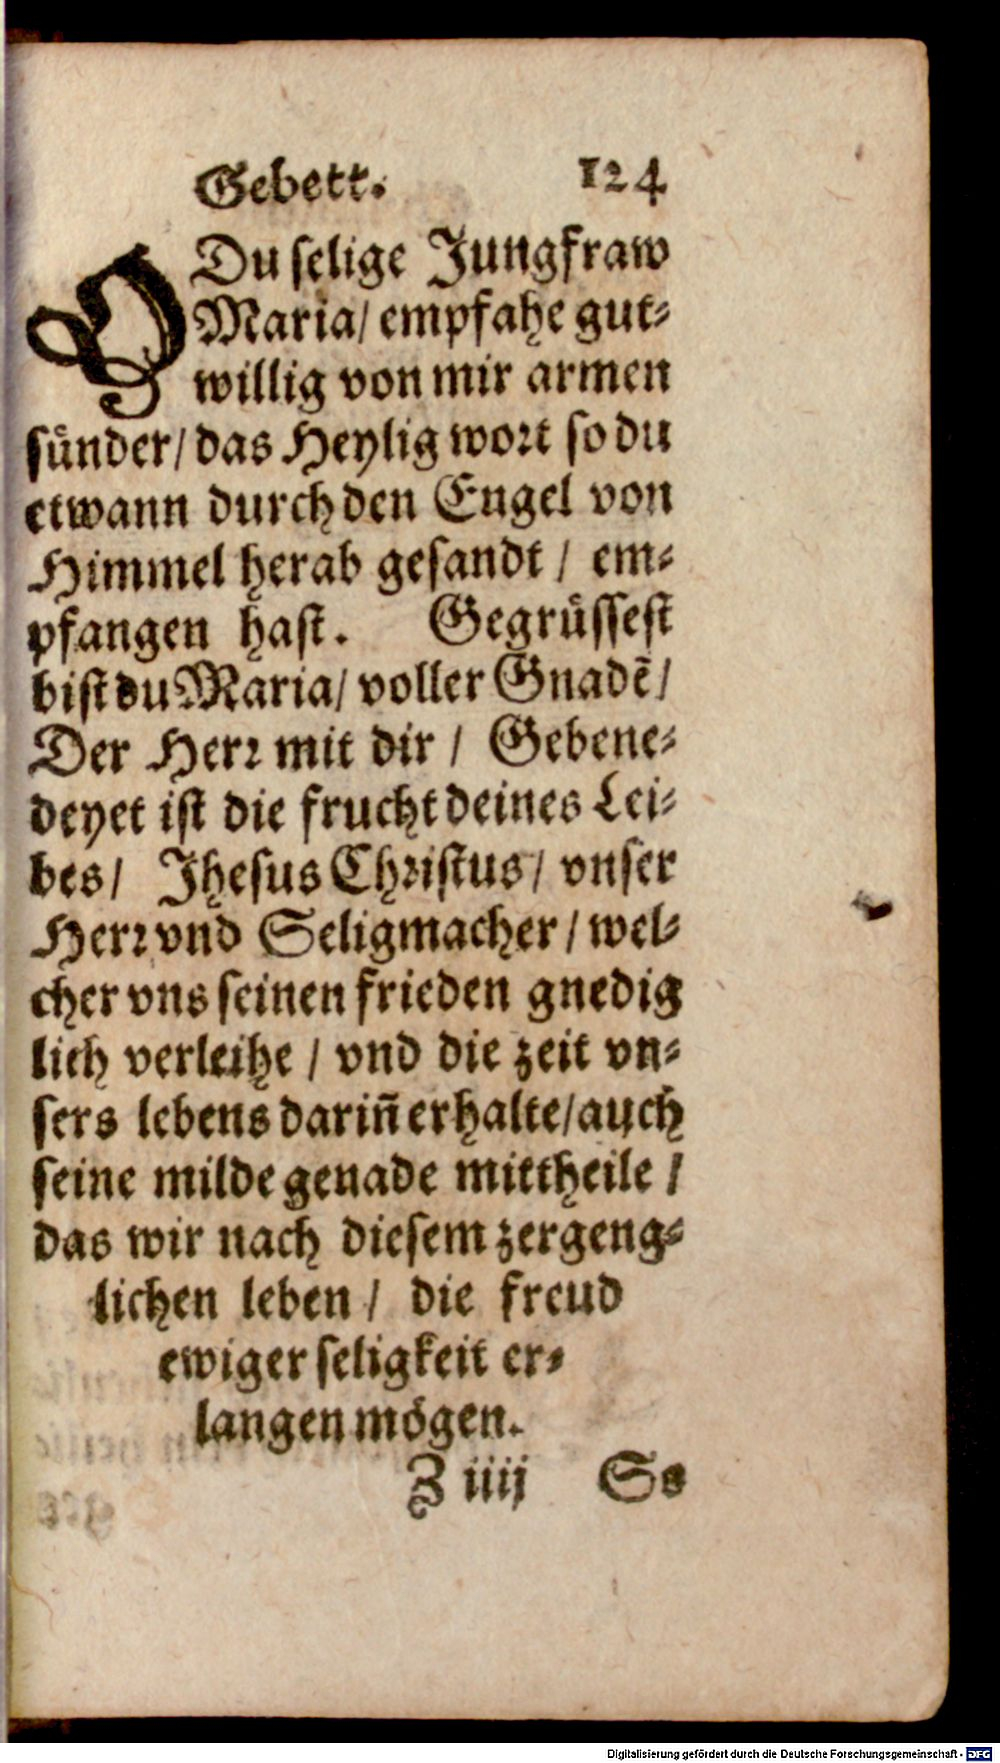 Gebett. 124
O Du selige Jungfraw
Maria/ empfahe gut-
willig von mir armen
sünder/ das Heylig wort so du
etwann durch den Engel von
Himmel herab gesandt / em-
pfangen hast. Gegrüssest
bist du Maria/ voller Gnadẽ/
Der Herr mit dir / Gebene-
deyet ist die frucht deines Lei-
bes/ Jhesus Christus/ vnser
Herr vnd Seligmacher / wel-
cher vns seinen frieden gnedig
lich verleihe / vnd die zeit vn-
sers lebens dariñ erhalte/ auch
seine milde genade mittheile /
das wir nach diesem zergeng-
lichen leben / die freud
ewiger seligkeit er-
langen mögen.
Z iiij So
Digitalisierung gefördert durch die Deutsche Forschungsgemeinschaft - DFG